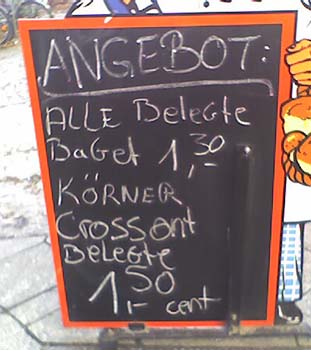 ANGEBOT:
ALLE BeLeGte
BaGet 1,30 -
KÖRNER
Crossont
BELEGTE
1,50 - cent